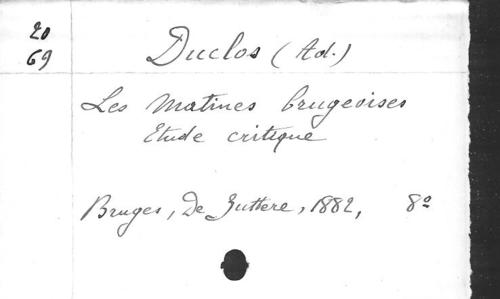 20
69
Duclos (Ad.)
Les Matines brugeoises
Etude critique
Bruges, De Zuttere, 1882, 8º